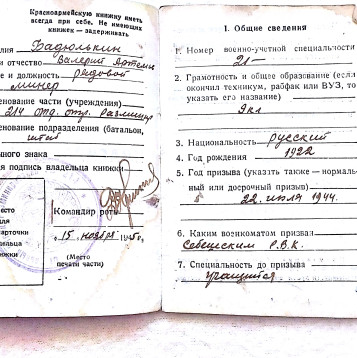 Красноармейскую книжку иметь
всегда при себе. Не имеющих
книжек — задерживать
Бадюлькин
отчество Валерий
и должность рядовой
минер
нование части (учреждения)
214 отд. отр. разминир
нование подразделения (батальон,
штаб
ного знака
я подпись владельца книжки
Командир роты
15 ноября 1945
(Место
печати части)
место
для
карточки
владельца
книжки
I. Общие сведения
1. Номер военно-учетной специальности
21—
2. Грамотность и общее образование (если
окончил техникум, рабфак или ВУЗ, то
указать его название)
9кл
3. Национальность русский
4. Год рождения 1922
5. Год призыва (указать также — нормаль-
ный или досрочный призыв)
22 июля 1944.
6. Каким военкоматом призван
Р.В.К.
7. Специальность до призыва
учащийся